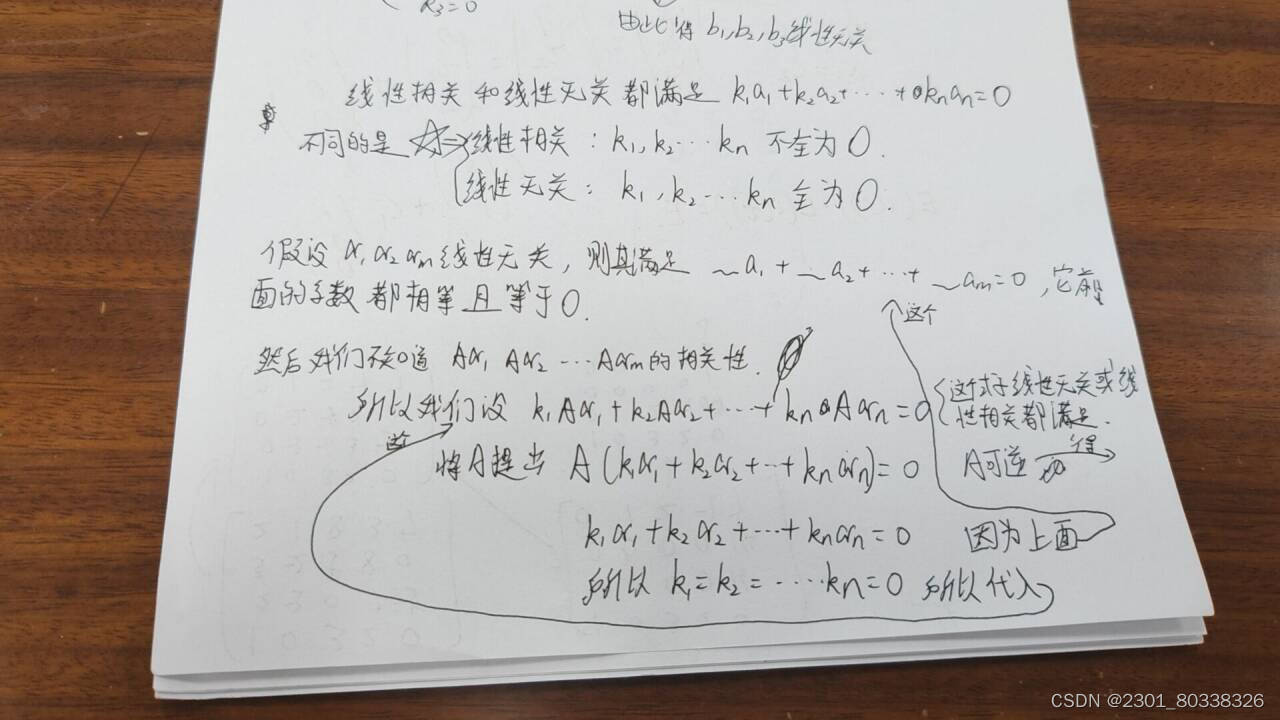 k₃=0
由此得 b₁,b₂,b₃线性无关
线性相关和线性无关都满足 k₁a₁+k₂a₂+⋯+knan=0
不同的是 线性相关：k₁,k₂⋯kn 不全为0.
线性无关：k₁,k₂⋯kn 全为0.
假设 α₁α₂αm线性无关，则其满足 ~a₁+~a₂+⋯+~am=0，它前
面的系数都相等且等于0.
这个
然后我们不知道 Aα₁ Aα₂ ⋯Aαm的相关性.
所以我们设 k₁Aα₁+k₂Aα₂+⋯+knAαn=0
这式子线性无关或线
性相关都满足.
将A提出 A(k₁α₁+k₂α₂+⋯+knαn)=0 A可逆 得
k₁α₁+k₂α₂+⋯+knαn=0 因为上面
所以 k₁=k₂=⋯⋯kn=0 所以代入
CSDN @2301_80338326